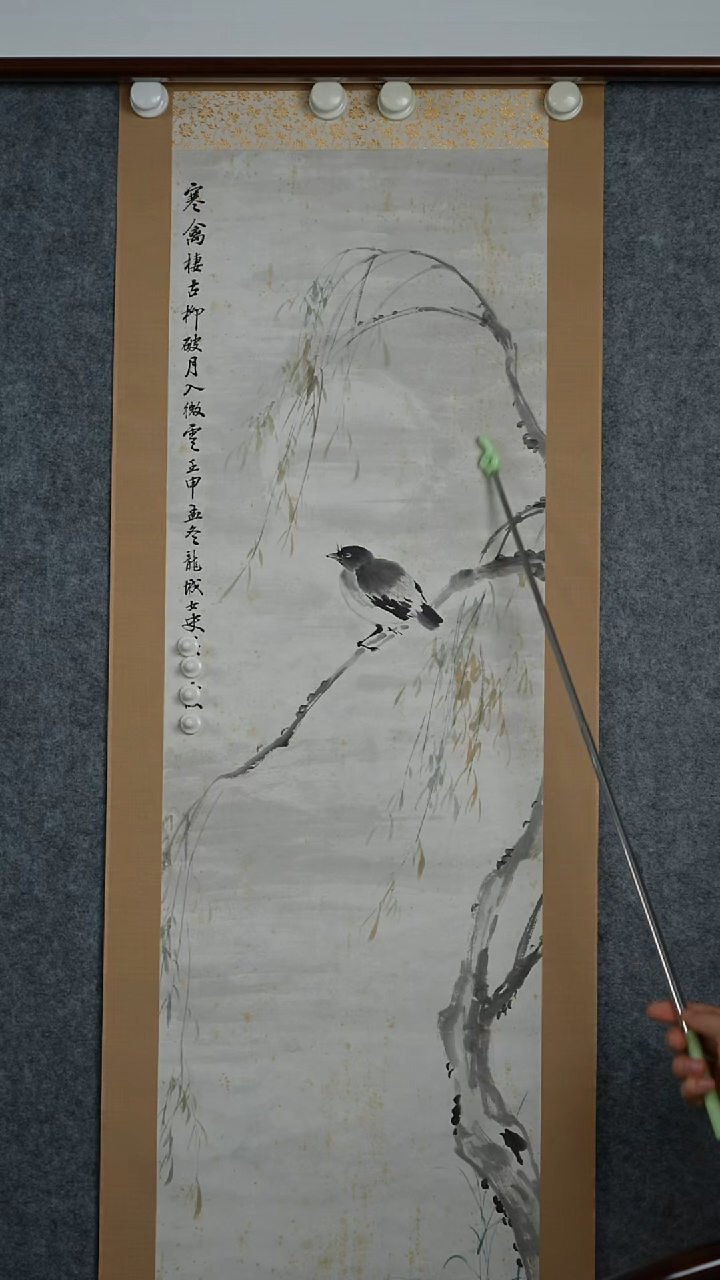 寒禽棲古柳破月入微雲壬申孟冬龍城女史